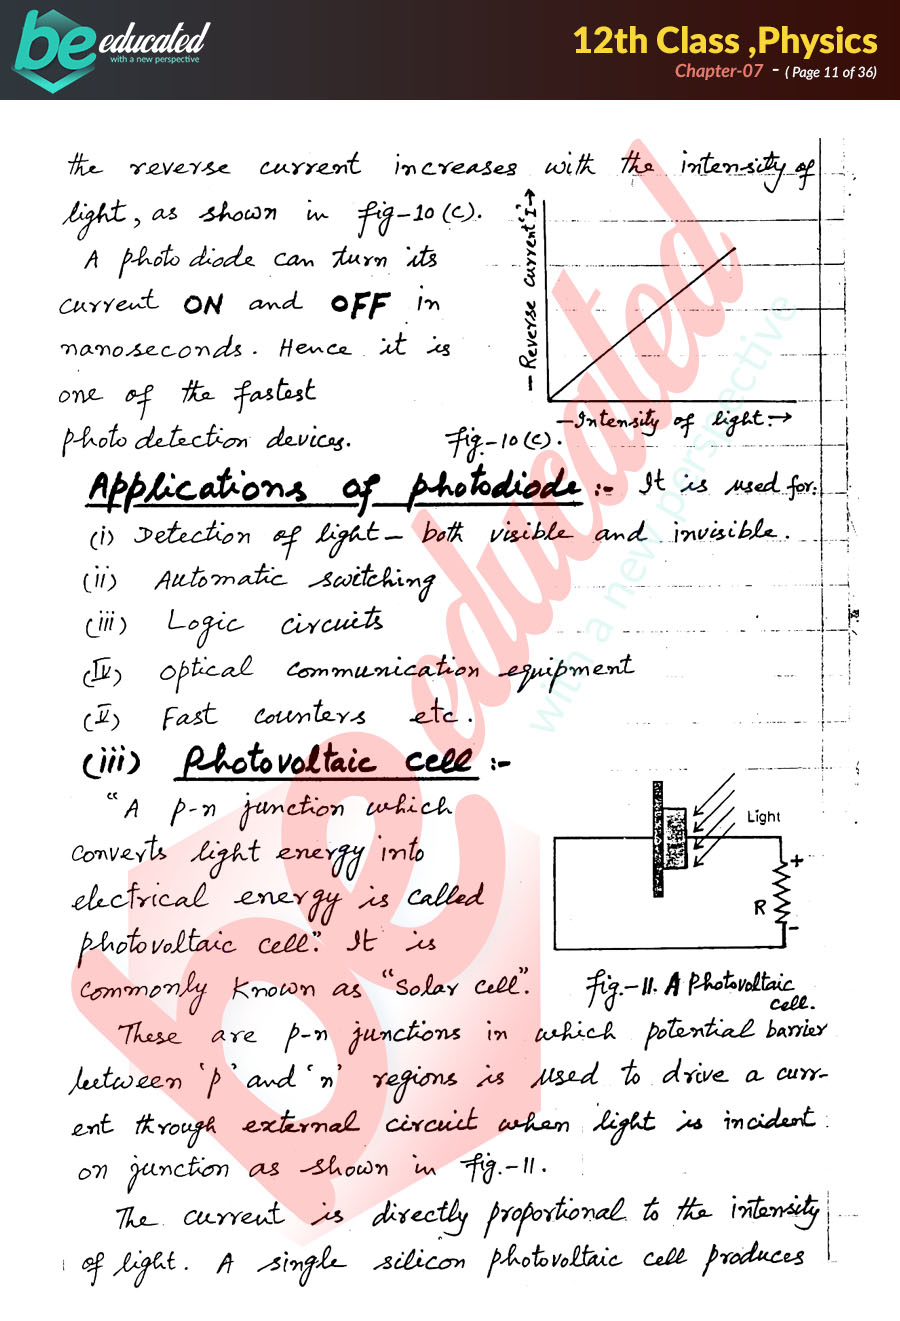 be educated
with a new perspective
12th Class ,Physics
Chapter-07 - ( Page 11 of 36)
the reverse current increases with the intensity of
light, as shown in fig-10(c).
A photo diode can turn its
current ON and OFF in
nanoseconds. Hence it is
one of the fastest
photo detection devices.
- Reverse current 'I' →
- Intensity of light. →
fig-10(c).
Applications of photodiode :- It is used for:
(i) Detection of light - both visible and invisible.
(ii) Automatic switching
(iii) Logic circuits
(IV) Optical communication equipment
(V) Fast counters etc.
(iii) Photovoltaic cell :-
"A p-n junction which
converts light energy into
electrical energy is called
photovoltaic cell." It is
commonly known as "Solar cell".
Light
+
R
-
fig.-11. A Photovoltaic
cell.
These are p-n junctions in which potential barrier
between 'p' and 'n' regions is used to drive a curr-
ent through external circuit when light is incident
on junction as shown in fig.-11.
The current is directly proportional to the intensity
of light. A single silicon photovoltaic cell produces
be educated
with a new perspective